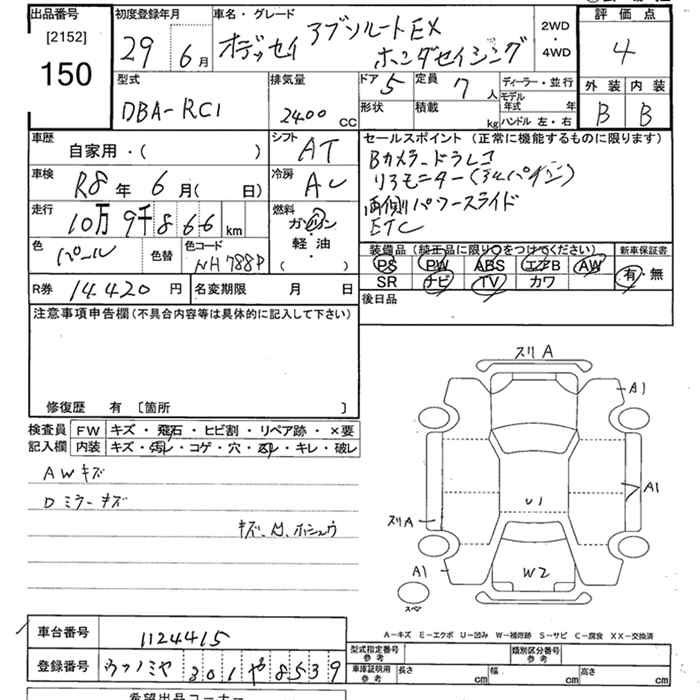 出品番号
[2152]
150
初度登録年月
29 6月
車名・グレード
オデッセイ アブソルートEX
ホンダセイシング
2WD
・
4WD
評価点
4
外装 内装
B B
型式
DBA-RC1
排気量
2400 CC
ドア 5
定員 7人
形状
積載 kg
ディーラー・並行
モデル年式 年
ハンドル 左・右
車歴
自家用・( )
シフト AT
車検
R8年 6月( 日)
冷房 AC
走行
10万9千866km
燃料
ガソリン
軽油
( )
色 パール
色替
色コード NH788P
R券 14.420円
名変期限 月 日
セールスポイント (正常に機能するものに限ります)
Bカメラ-ドラレコ
リアモニター(アルパイン)
両側パワースライド
ETC
装備品 (純正品に限り○をつけてください)
新車保証書
PS PW ABS エアB AW
有・無
SR ナビ TV カワ
後日品
注意事項申告欄(不具合内容等は具体的に記入して下さい)
修復歴 有 〔箇所 〕
検査員 FW キズ・飛石・ヒビ割・リペア跡・×要
記入欄 内装 キズ・汚レ・コゲ・穴・スレ・キレ・破レ
AW キズ
D ミラーキズ
スリA
A1
A1
U1
スリA
A1
W2
スペア
A-キズ E-エクボ U-凹み W-補修跡 S-サビ C-腐食 XX-交換済
車台番号 1124415
登録番号 ウツノミヤ 301 や 8539
型式指定番号 参考
類別区分番号 参考
車庫証明用 参考
長さ cm
幅 cm
高さ cm
希望出品コーナー